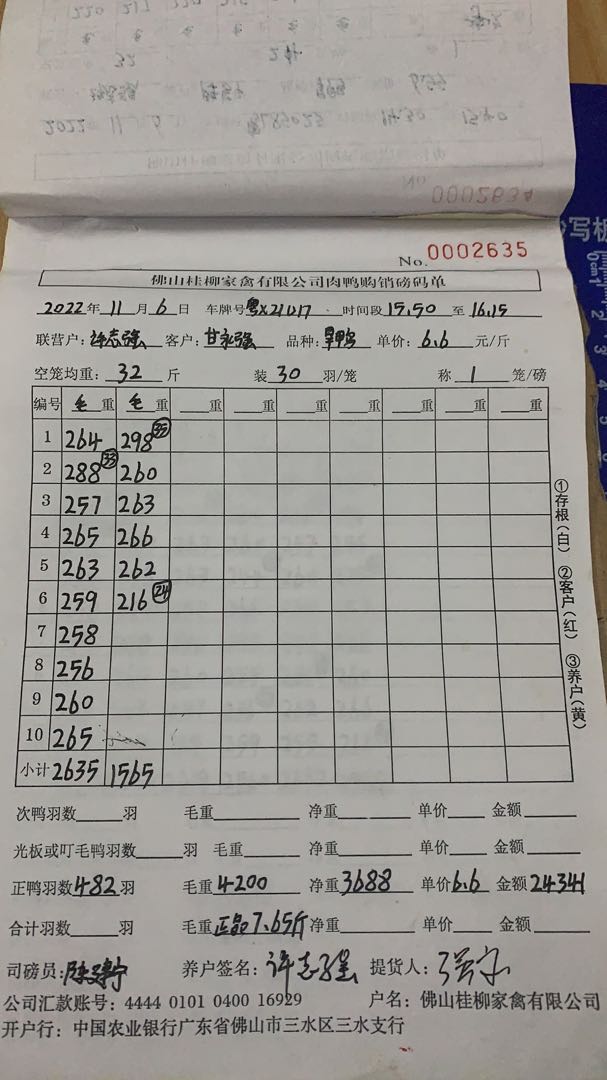 No. 0002634
No. 0002635
佛山桂柳家禽有限公司肉鸭购销磅码单
2022年 11月 6日 车牌号粤X21U17 时间段15.50至16.15
联营户:许志强 客户:甘永强 品种: 单价:6.6元/斤
空笼均重:32斤 装30羽/笼 称1笼/磅
编号 毛重 毛重 重 重 重 重 重 重 重
1 264 298 35
2 288 33 260
3 257 263
4 265 266
5 263 262
6 259 216 24
7 258
8 256
9 260
10 265
小计 2635 1565
①存根(白) ②客户(红) ③养户(黄)
次鸭羽数 羽 毛重 净重 单价 金额
光板或叮毛鸭羽数 羽 毛重 净重 单价 金额
正鸭羽数482羽 毛重4200 净重3688 单价6.6 金额24341
合计羽数 羽 毛重正品7.65斤 净重 单价 金额
司磅员: 养户签名:许志强 提货人:
公司汇款账号:4444 0101 0400 16929 户名:佛山桂柳家禽有限公司
开户行:中国农业银行广东省佛山市三水区三水支行
写板
0 1 cm
2
3
4
5